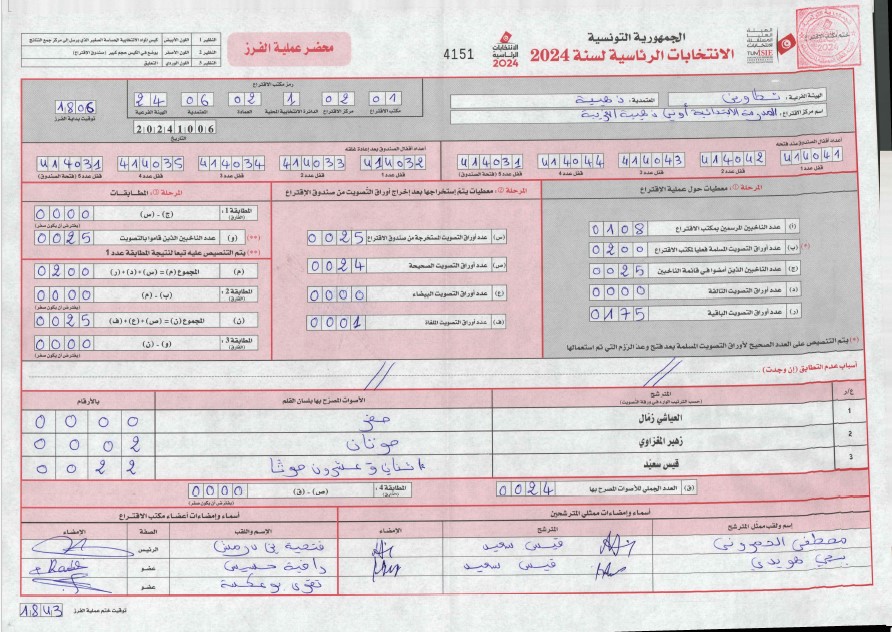 الجمهورية التونسية
الانتخابات الرئاسية لسنة 2024
الانتخابات الرئاسية 2024
4151
محضر عملية الفرز
النظير 1 اللون الأبيض
النظير 2 اللون الأصفر يوضع في الكيس حجم كبير (صندوق الاقتراع)
النظير 3 اللون الوردي التعليق
الهيئة الفرعية: تطاوين المعتمدية: ذهيبة
اسم مركز الاقتراع: المدرسة الابتدائية
رمز مكتب الاقتراع
01 02 1 02 06 24
مكتب الاقتراع مركز الاقتراع الدائرة الانتخابية المحلية العمادة المعتمدية الهيئة الفرعية
20241006
التاريخ
1806
توقيت بداية الفرز
أعداد أقفال الصندوق عند فتحه
414041 414042 414043 414044 414031
قفل عدد 1 قفل عدد 2 قفل عدد 3 قفل عدد 4 قفل عدد 5 (فتحة الصندوق)
أعداد أقفال الصندوق بعد إعادة غلقه
414032 414033 414034 414035 414031
قفل عدد 1 قفل عدد 2 قفل عدد 3 قفل عدد 4 قفل عدد 5 (فتحة الصندوق)
المرحلة ①: معطيات حول عملية الاقتراع
(أ) عدد الناخبين المرسمين بمكتب الاقتراع 0108
(*) (ب) عدد أوراق التصويت المسلمة فعليا لمكتب الاقتراع 0200
(ج) عدد الناخبين الذين أمضوا في قائمة الناخبين 0025
(د) عدد أوراق التصويت التالفة 0000
(ر) عدد أوراق التصويت الباقية 0175
(*) يتم التنصيص على العدد الصحيح لأوراق التصويت المسلمة بعد فتح وعد الرزم التي تم استعمالها
المرحلة ②: معطيات يتم إستخراجها بعد إخراج أوراق التصويت من صندوق الاقتراع
(س) عدد أوراق التصويت المستخرجة من صندوق الاقتراع 0025
(ص) عدد أوراق التصويت الصحيحة 0024
(ع) عدد أوراق التصويت البيضاء 0000
(ف) عدد أوراق التصويت الملغاة 0001
المرحلة ③: المطابقات
المطابقة 1: (الفارق) (ج) - (س) 0000
(يفترض أن يكون صفر)
(**) (و) عدد الناخبين الذين قاموا بالتصويت 0025
(**) يتم التنصيص عليه تبعا لنتيجة المطابقة عدد 1
(م) المجموع (م) = (س)+(د)+(ر) 0200
المطابقة 2: (الفارق) (ب) - (م) 0000
(يفترض أن يكون صفر)
(ن) المجموع (ن) = (ص)+(ع)+(ف) 0025
المطابقة 3: (الفارق) (و) - (ن) 0000
(يفترض أن يكون صفر)
أسباب عدم التطابق (إن وجدت):
ع/ر المترشح الأصوات المصرح بها بلسان القلم بالأرقام
(حسب الترتيب الوارد في ورقة التصويت)
1 العياشي زمال صفر 0000
2 زهير المغزاوي صوتان 0002
3 قيس سعيد اثنان و عشرون صوتا 0022
(ق) العدد الجملي للأصوات المصرح بها 0024
المطابقة 4: (الفارق) (ص) - (ق) 0000
(يفترض أن يكون صفر)
أسماء وإمضاءات ممثلي المترشحين
أسماء وإمضاءات أعضاء مكتب الاقتراع
إسم ولقب ممثل المترشح المترشح الإمضاء الإسم واللقب الصفة الإمضاء
مصطفى قيس سعيد فتحية الرئيس
يحي هويدي قيس سعيد عضو
تقوى بوعكسة عضو
توقيت ختم عملية الفرز 1843